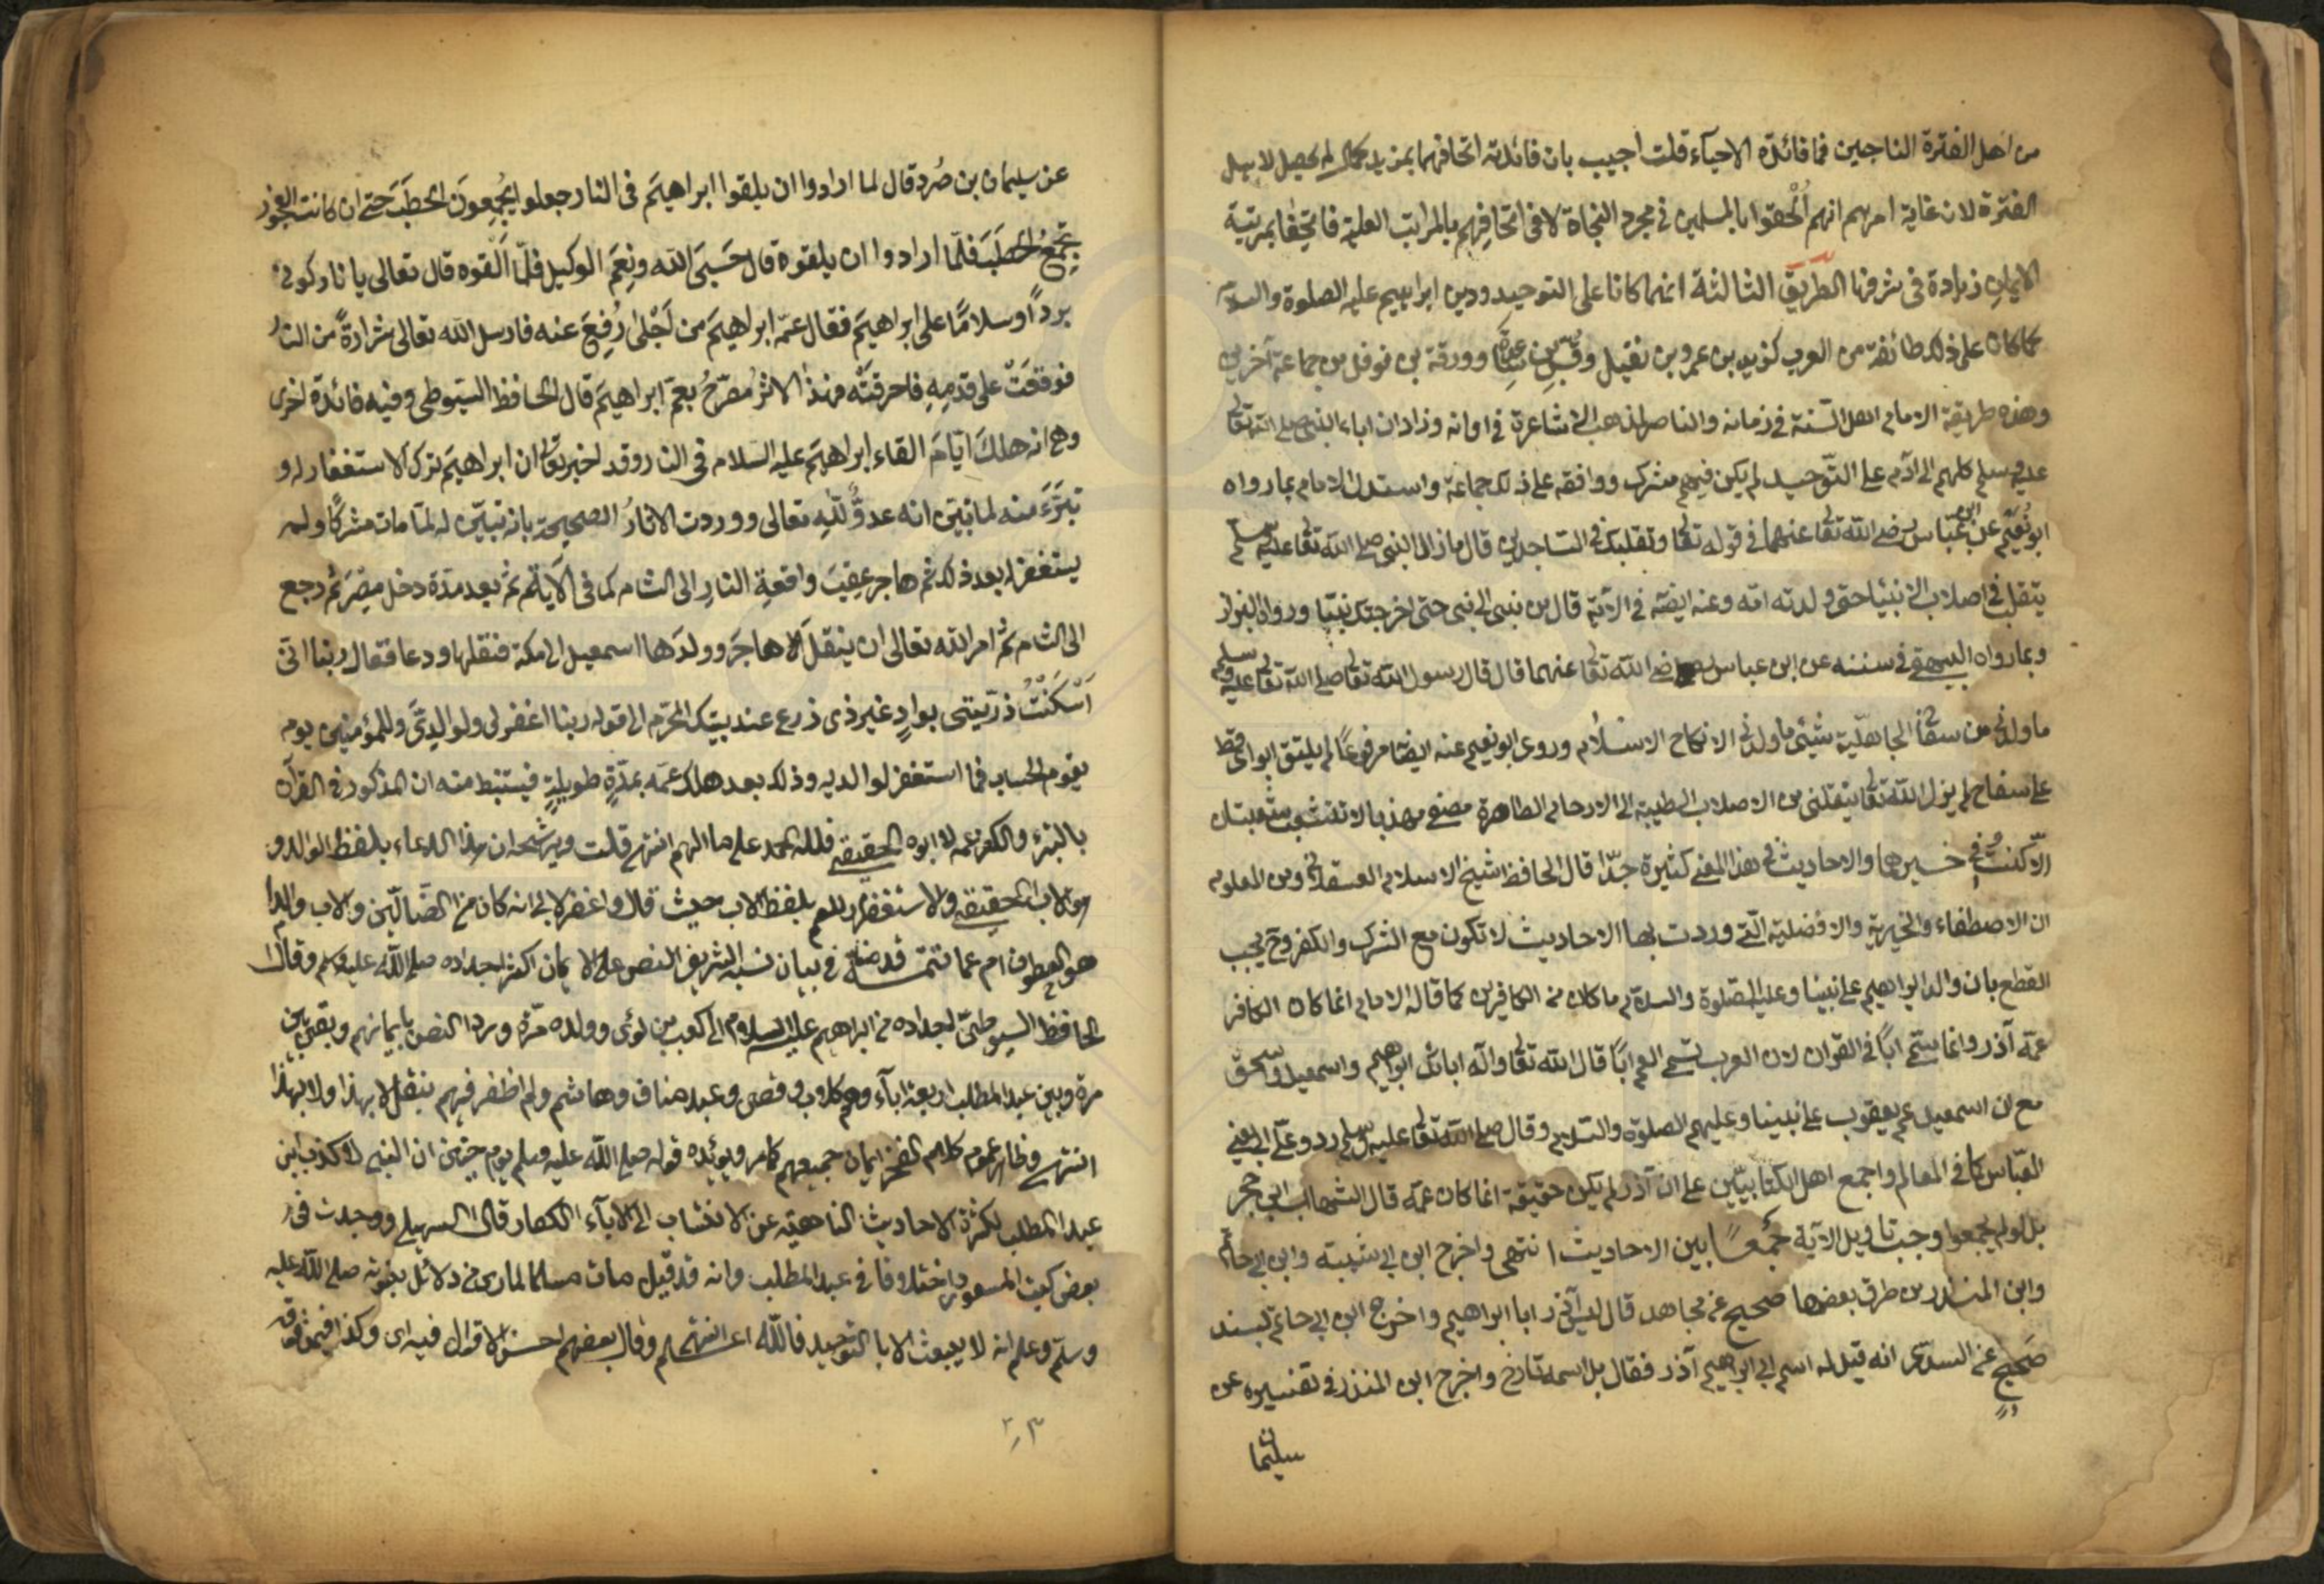 من اهل الفترة الناجين فما فائدة الاحياء قلت اجيب بان فائدته اتحافهما بمزيد كمال لم يحصل لاهل
الفترة لان غاية امرهم انهم اُلْحِقوا بالمسلمين في مجرد النجاة لا في اتحافهم بالمراتب العلية فاتحفا بمرتبة
الايمان زيادة في شرفها الطريق الثالثة انهما كانا على التوحيد ودين ابراهيم عليه الصلوة والسلام
كما كان على ذلك طائفة من العرب كزيد بن عمرو بن نفيل وقُسّ بن ساعدة وورقة بن نوفل من جماعة آخرين
وهذه طريقة الامام اهل السّنة في زمانه والناصر لمذهب الاشاعرة في اوانه وزاد ان اباء النبى صلى الله تعالى
عليه وسلم كلهم الى آدم على التّوحيد لم يكن فيهم مشرك ووافقه على ذلك جماعة واستدل الامام بما رواه
ابو نُعَيْم عن ابن عبّاس رضى الله تعالى عنهما في قوله تعالى وتقلبك في السّاجدين قال ما زال النبى صلى الله تعالى عليه وسلم
يتقلب في اصلاب الانبياء حتى ولدته امّه وعنه ايضا في الآية قال من نبى الى نبى حتى اخرجتك نبيّا ورواه البزار
وبما رواه البيهقى في سننه عن ابن عباس رضى الله تعالى عنهما قال قال رسول الله تعالى صلى الله تعالى عليه وسلم
ما ولدنى من سفاح الجاهليّة شيئ ما ولدنى الا نكاح الاسلام وروى ابو نعيم عنه ايضا مرفوعًا لم يلتق ابواى قط
على سفاح لم يزل الله تعالى ينقلنى من الاصلاب الطيبة الى الارحام الطاهرة مصفى مهذبا لا تتشعب شعبتان
الا كنتُ في خيرهما والاحاديث في هذا المعنى كثيرة جدّا قال الحافظ شيخ الاسلام العسقلانى ومن المعلوم
ان الاصطفاء والخيرية والافضلية الّتى وردت بها الاحاديث لا تكون مع الشرك والكفر وح يجب
القطع بان والد ابراهيم على نبينا وعليه الصّلوة والسلام ما كان من الكافرين كما قاله الامام انما كان الكافر
عمّه آذر وانما سمّى اباً في القران لان العرب تسمى العم اباً قال الله تعالى واله ابائك ابراهيم واسمعيل واسحق
مع ان اسمعيل عم يعقوب على نبينا وعليهم الصلوة والسّلام وقال صلى الله تعالى عليه وسلم ردو علىّ ابى يعنى
العبّاس كما في المعالم واجمع اهل الكتابيّين على ان آذر لم يكن حقيقة انما كان عمّه قال الشهاب ابن حجر
بل لو لم يجمعوا وجب تاويل الآية جَمْعًا بين الاحاديث انتهى واخرج ابن ابى شيبة وابن ابى حاتم
وابن المنذر من طرق بعضها صحيح عن مجاهد قال ليس آذر ابا ابراهيم واخرج ابن ابى حاتم بسند
صَحيحٍ عن السدّى انه قيل له اسم ابى ابراهيم آذر فقال بل اسمه تارخ واخرج ابن المنذر في تفسيره عن
سليمان
عن سليمان بن صُرد قال لما ارادوا ان يلقوا ابراهيمَ فى النار جعلوا يُجمِعونَ الحطَبَ حتى ان كانت العجوز
تجمَعُ الحطَبَ فلمّا ارادوا ان يلقوه قال حَسْبِىَ الله ونِعْمَ الوكيل فلمّا اَلْقوه قال تعالى يا نار كونى
برداً وسلامًا على ابراهيمَ فقال عمّه ابراهيمَ من اَجْلى رُفِعَ عنه فارسل الله تعالى شرارةً من النّار
فوقعَتْ على قدمِهِ فاحرقتْه فهذا الاثرُ مُصَرِّحُ بعمّ ابراهيمَ قال الحافظ السّيوطى وفيه فائدة اخرى
وهى انه هلكَ ايّامَ القاء ابراهيمَ عليه السّلام فى النار وقد اخبر تعالى ان ابراهيمَ ترك الاستغفار له و
تبرّءَ منه لما تبيّن انه عدوٌّ للّهِ تعالى ووردت الاثارُ الصحيحة بانه تبيّن له لمّا مات مشركًا ولم
يستغفر له بعد ذلك ثم هاجر عقيبَ واقعةِ النارِ الى الشام كما فى الآية ثم بعد مدّة دخل مِصْرَ ثم رجع
الى الشام ثم امر الله تعالى ان ينقلَ الا هاجرَ وولدَها اسمعيل الى مكة فنقلها ودعا فقال ربنا انى
اَسْكَنْتُ ذرّيتى بوادٍ غير ذى زرع عند بيتك المحرّم الى قوله ربنا اغفر لى ولوالِدَىَّ وللمؤمنين يوم
يقوم الحساب فما استغفر لوالديه وذلك بعد هلاك عمّه بمدّةٍ طويلةٍ فيستنبط منه ان المذكور في القرآن
بالتبرّء والكفر عمه لا ابوه الحقيقى فلله الحمد على ما الهم انتهى قلت ويرشحه ان هذا الدعاء بلفظ الوالد و
هو الاب الحقيقى والاستغفار للعم بلفظ الاب حيث قال واغفر لابى انه كان من الضّالّين والاب والد
هو العطوف ام عما تتمة قد في بيان نسبه الشريف النص على الايمان اكثر اجداده صلى الله عليه وسلم وقال
الحافظ السيوطىّ اجداده من ابراهيم عليه السلام الى كعب بن لؤى وولده مرّة ورد النصّ بايمانهم وبقى بين
مرة وبين عبد المطلب اربعة اباء وهم كلاب وقصى وعبد مناف وهاشم ولم اظفر فيهم بنقل لا بهذا ولا بهذا
انتهى وظاهر عموم كلام الفخر ايمان جميعهم كما مر ويؤيّده قوله صلى الله عليه وسلم يوم حنين ان النبى لا كذب ابن
عبد المطلب لكثرة الاحاديث الناهية عن الانتساب الى الاباء الكفار قال السهيلى ووجدت في
بعض كتب المسعودى اختلافا في عبد المطلب وانه قد قيل مات مسلما لما راى من دلائل نبوته صلى الله عليه
وسلم وعلم انه لا يبعث الا بالتوحيد فاللّه اعلم انتهى وقال بعضهم احسن الاقوال فيه اى وكذا فيمن فوقه